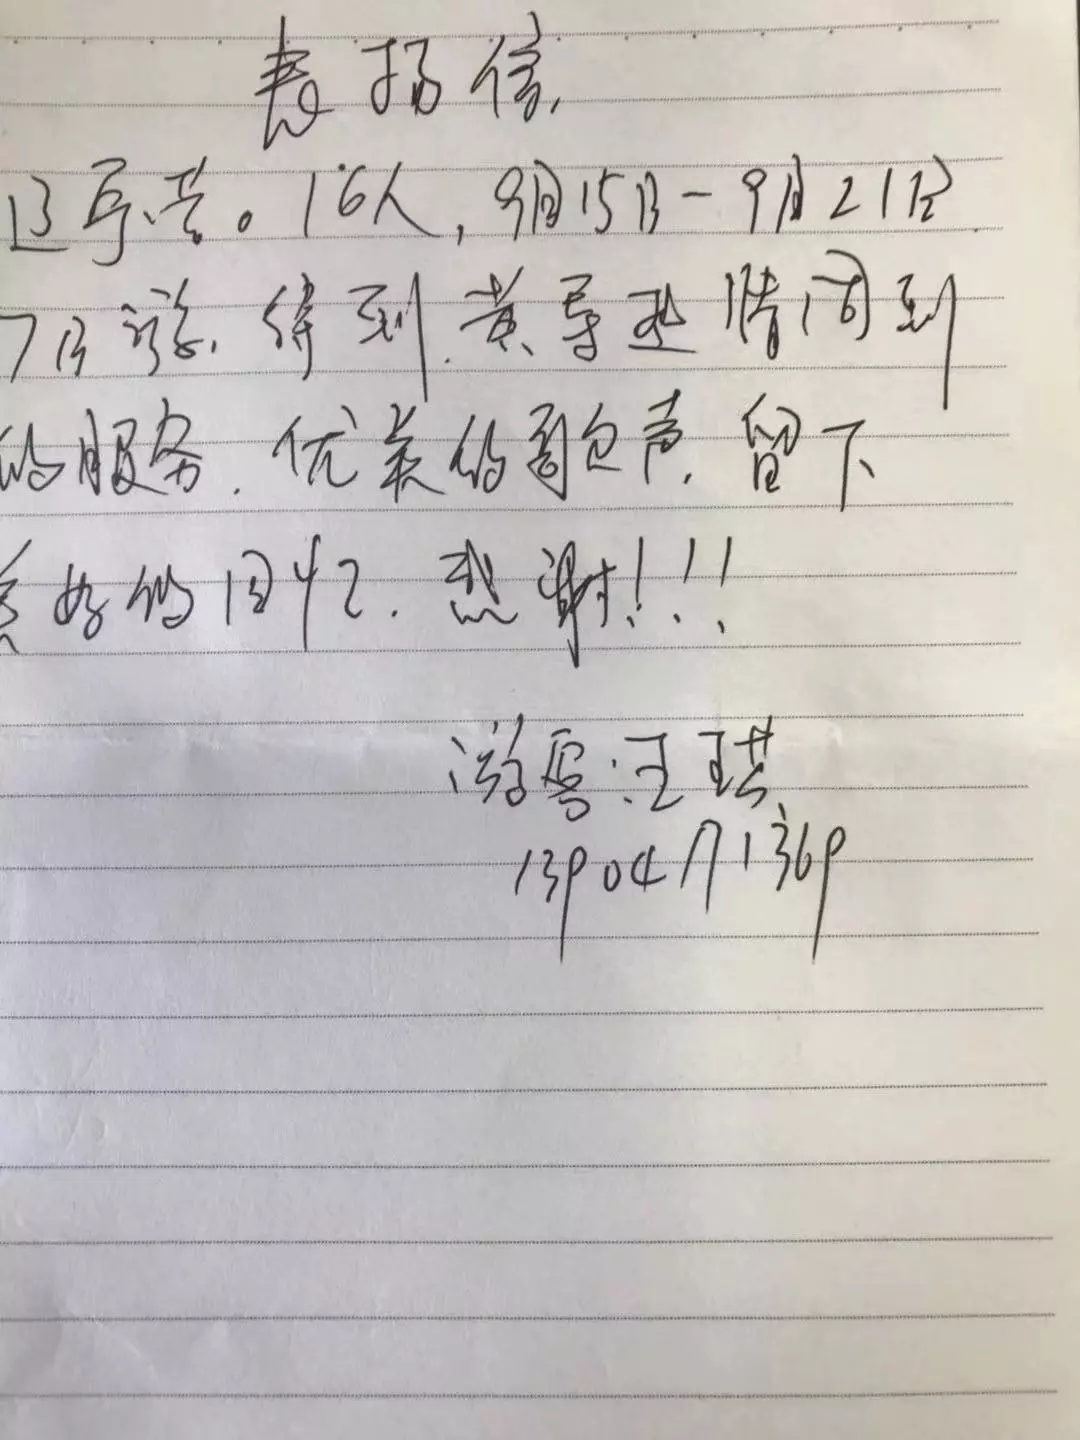 表扬信
16人,9月15日-9月21日
7日游.得到.黄导热情周到
的服务.优美的歌声.留下
美好的回忆.感谢!!!
游客:汪琪
13904171369